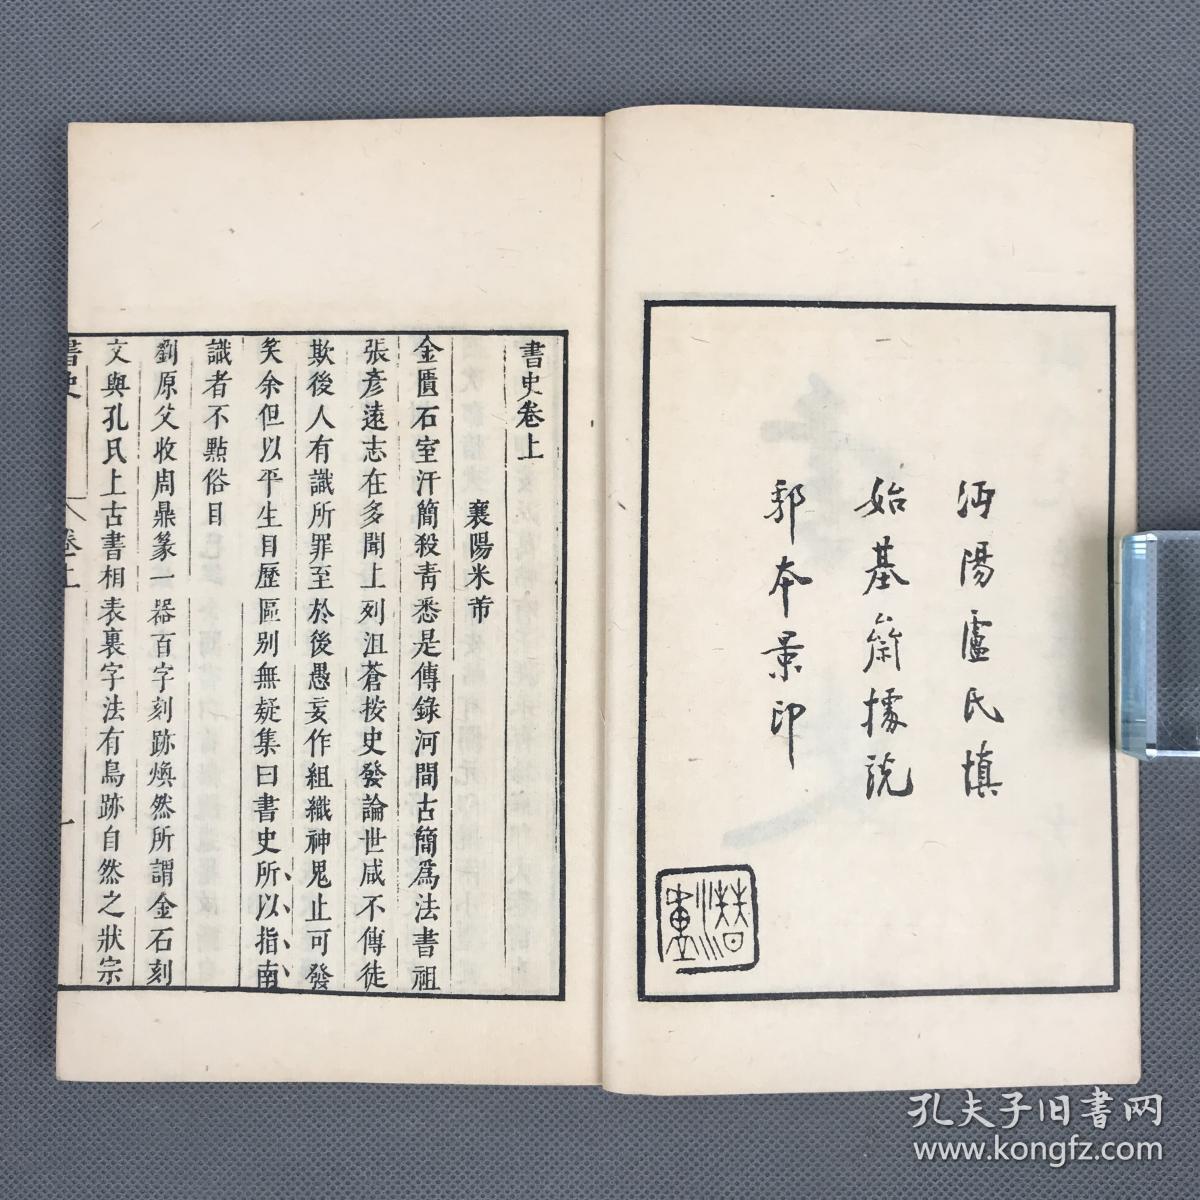 沔陽盧氏慎
始基齋據說
郛本景印
書史卷上
襄陽米芾
金匱石室汗簡殺青悉是傳錄河間古簡爲法書祖
張彥遠志在多聞上列沮蒼按史發論世咸不傳徒
欺後人有識所罪至於後愚妄作組織神鬼止可發
笑余但以平生目歷區別無疑集曰書史所以指南
識者不點俗目
劉原父收周鼎篆一器百字刻跡煥然所謂金石刻
文與孔氏上古書相表裏字法有鳥跡自然之狀宗
書史
卷上
一
孔夫子旧书网
www.kongfz.com